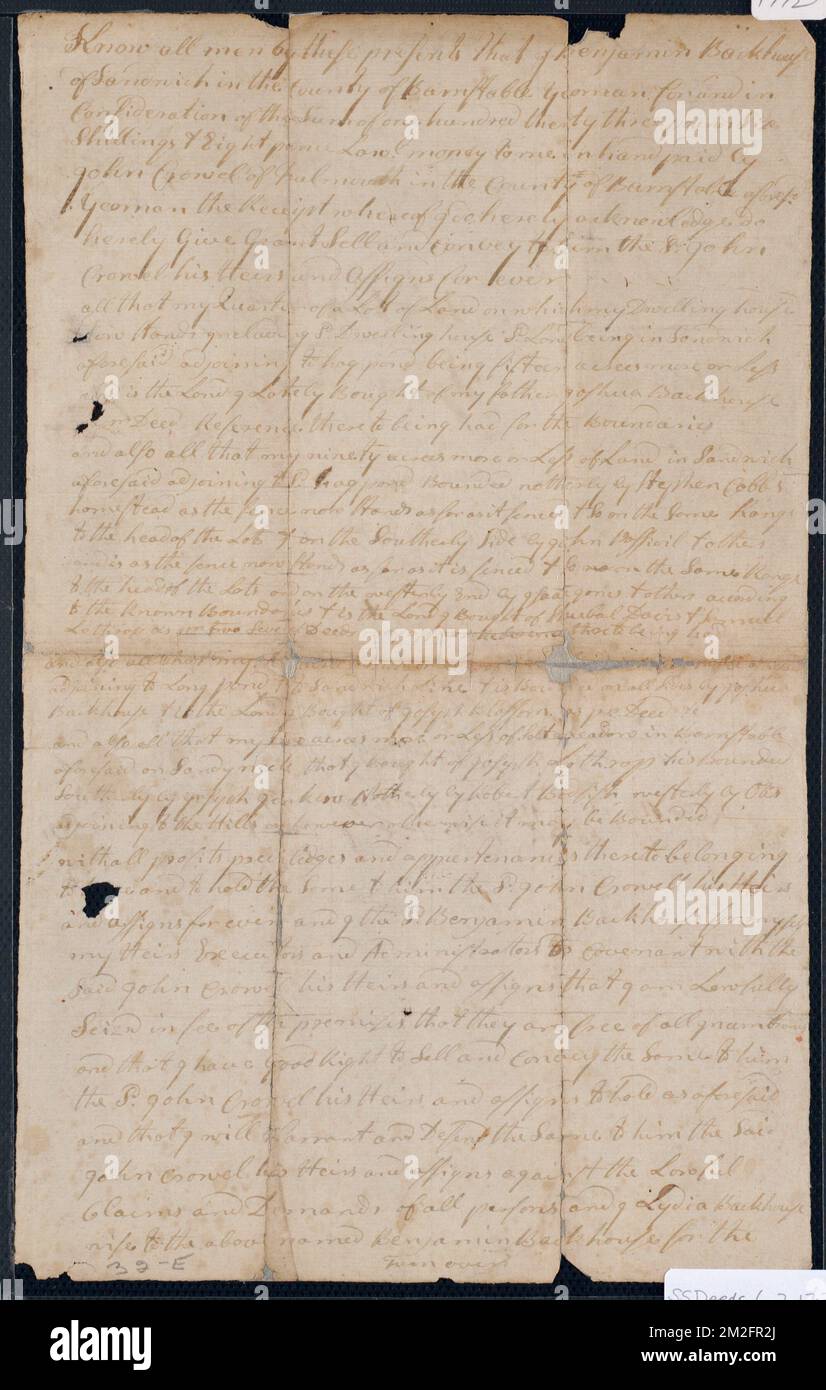 Know all men by these presents that I Benjamin Backhouse
of Sandwich in the County of Barnstable Yeoman for and in
Consideration of the Sum of one hundred thirty three pounds six
Shillings & Eight pence Lawl. money to me in hand paid by
John Crowel of Falmouth in the County of Barnstable aforesd.
Yeoman the Receipt whereof I do hereby acknowledge do
hereby Give Grant Sell and convey to him the Sd. John
Crowel his Heirs and Assigns for ever
all that my Quarter of a Lot of Land on which my Dwelling house
now Stands including Sd. Dwelling house Sd. Land being in Sandwich
aforesaid adjoining to hog pond being fifteen acres more or Less
is the Land I Lately Bought of my father Joshua Backhouse
Deed Reference thereto being had for the Boundaries
and also all that my ninety acres more or Less of Land in Sandwich
aforesaid adjoining to Sd. hog pond Bounded notherly by Stephen Cobb's
homestead as the fence now Stands as far as it fenced & So on the Same Range
to the head of the Lots & on the Southerly Side by John & others
and is as the fence now Stands as far as it is fenced & So on the Same Range
to the head of the Lots and on the westerly End by & others according
to the known Boundaries & is the Land I Bought of Shubal Davis & Samuel
Lothrop as pr. two Deeds thereto being had
and also all that my
adjoining to Long pond & to Sandwich Line & is Bounded on all by Joshua
Backhouse & is the Land I Bought of Joseph Blossom as pr. Deed
and also all that my acres more or Less of Salt meadow in Barnstable
aforesaid on Sandy neck that I bought of Joseph Lothrop & is Bounded
Southerly by Joseph Jenkins Notherly by Robert westerly by Otis
adjoining to the Hills or however otherwise it may be Bounded
with all profits priviledges and appurtenances thereto belonging
to have and to hold the Same to him the Sd. John Crowel his Heirs
and assigns for ever and I the sd Benjamin Backhouse for myself
my Heirs Executors and Administrators do covenant with the
Said John Crowel his Heirs and assigns that I am Lawfully
Seized in fee of the premises that they are free of all
and that I have Good Right to Sell and Convey the Same to him
the Sd. John Crowel his Heirs and assigns to hold as aforesaid
and that I will Warrant and Defend the Same to him the Said
John Crowel his Heirs and assigns against the Lawful
Claims and Demands of all persons and I Lydia Backhouse
wife to the above named Benjamin Backhouse for the
Turn over
39-E
SSDeeds
alamy
Image ID: 2M2FR2J
www.alamy.com